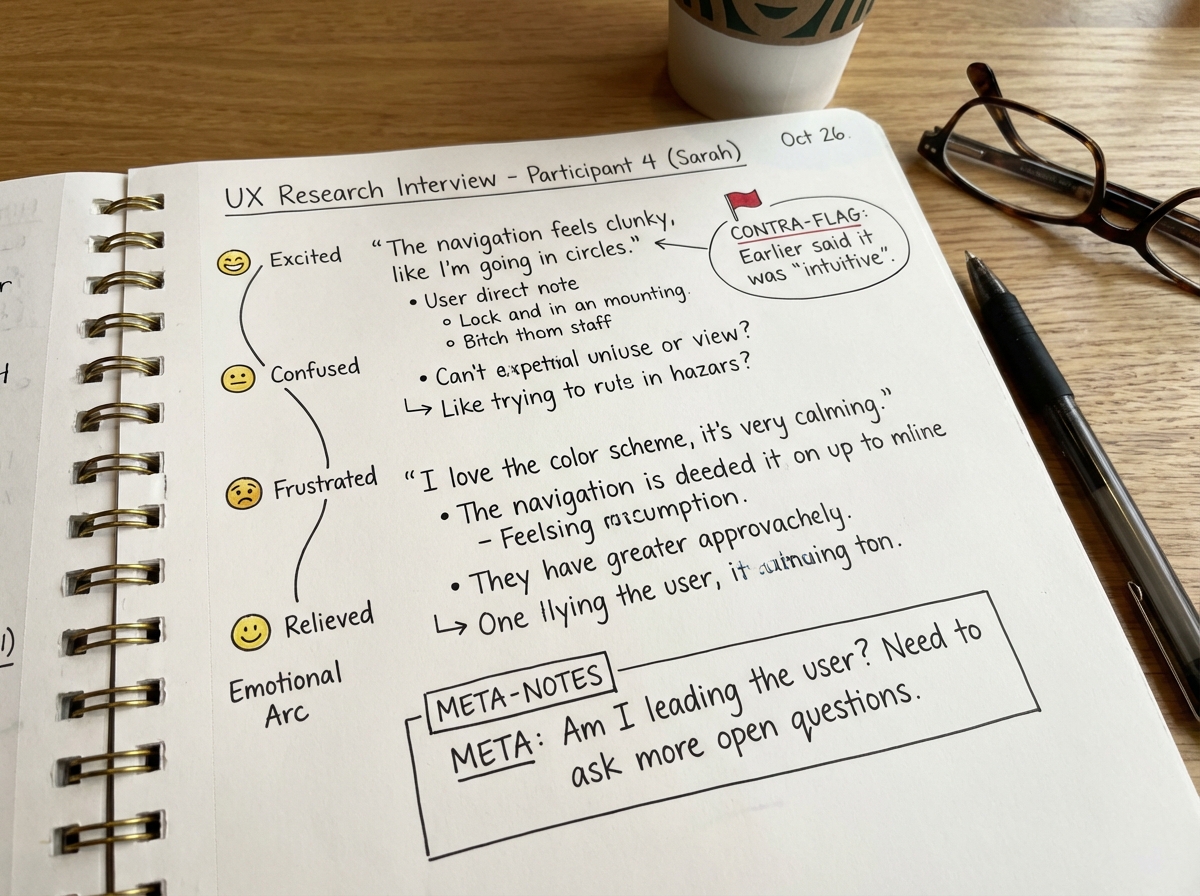 UX Research Interview – Participant 4 (Sarah)
Oct 26.
Excited
Confused
Frustrated
Relieved
Emotional
Arc
“The navigation feels clunky,
like I'm going in circles.”
CONTRA-FLAG:
Earlier said it
was “intuitive”.
• User direct note
o Lock and in an mounting.
o Bitch thom staff
• Can't uniuse or view?
↳ Like trying to ruts in hazars?
“I love the color scheme, it's very calming.”
• The navigation is deeded it on up to mline
– Feelsing
• They have greater approvachely.
↳ One llying the user, it ton.
META-NOTES
META: Am I leading the user? Need to
ask more open questions.